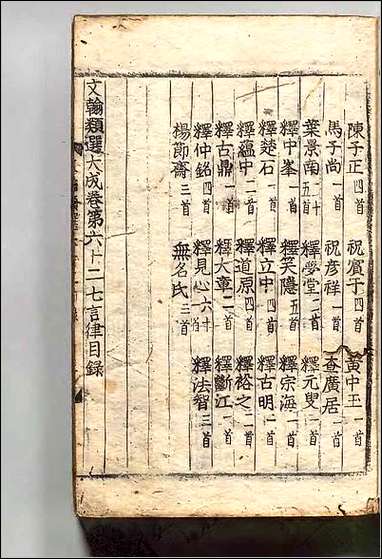 陳子正四首 祝賓于四首 黃中玉一首
馬子尚一首 祝彥祥一首 查廣居一首
葉景南二十五首 釋夢堂二首 釋元叟二首
釋中峯一首 釋笑隱五首 釋宗海一首
釋楚石一首 釋立中四首 釋古明二首
釋蘊中二首 釋道原四首 釋裕之二首
釋古鼎一首 釋大章二首 釋斷江一首
釋仲銘四首 釋見心六十首 釋法智三首
楊節齋三首 無名氏三首
文翰類選大成卷第六十二七言律目録